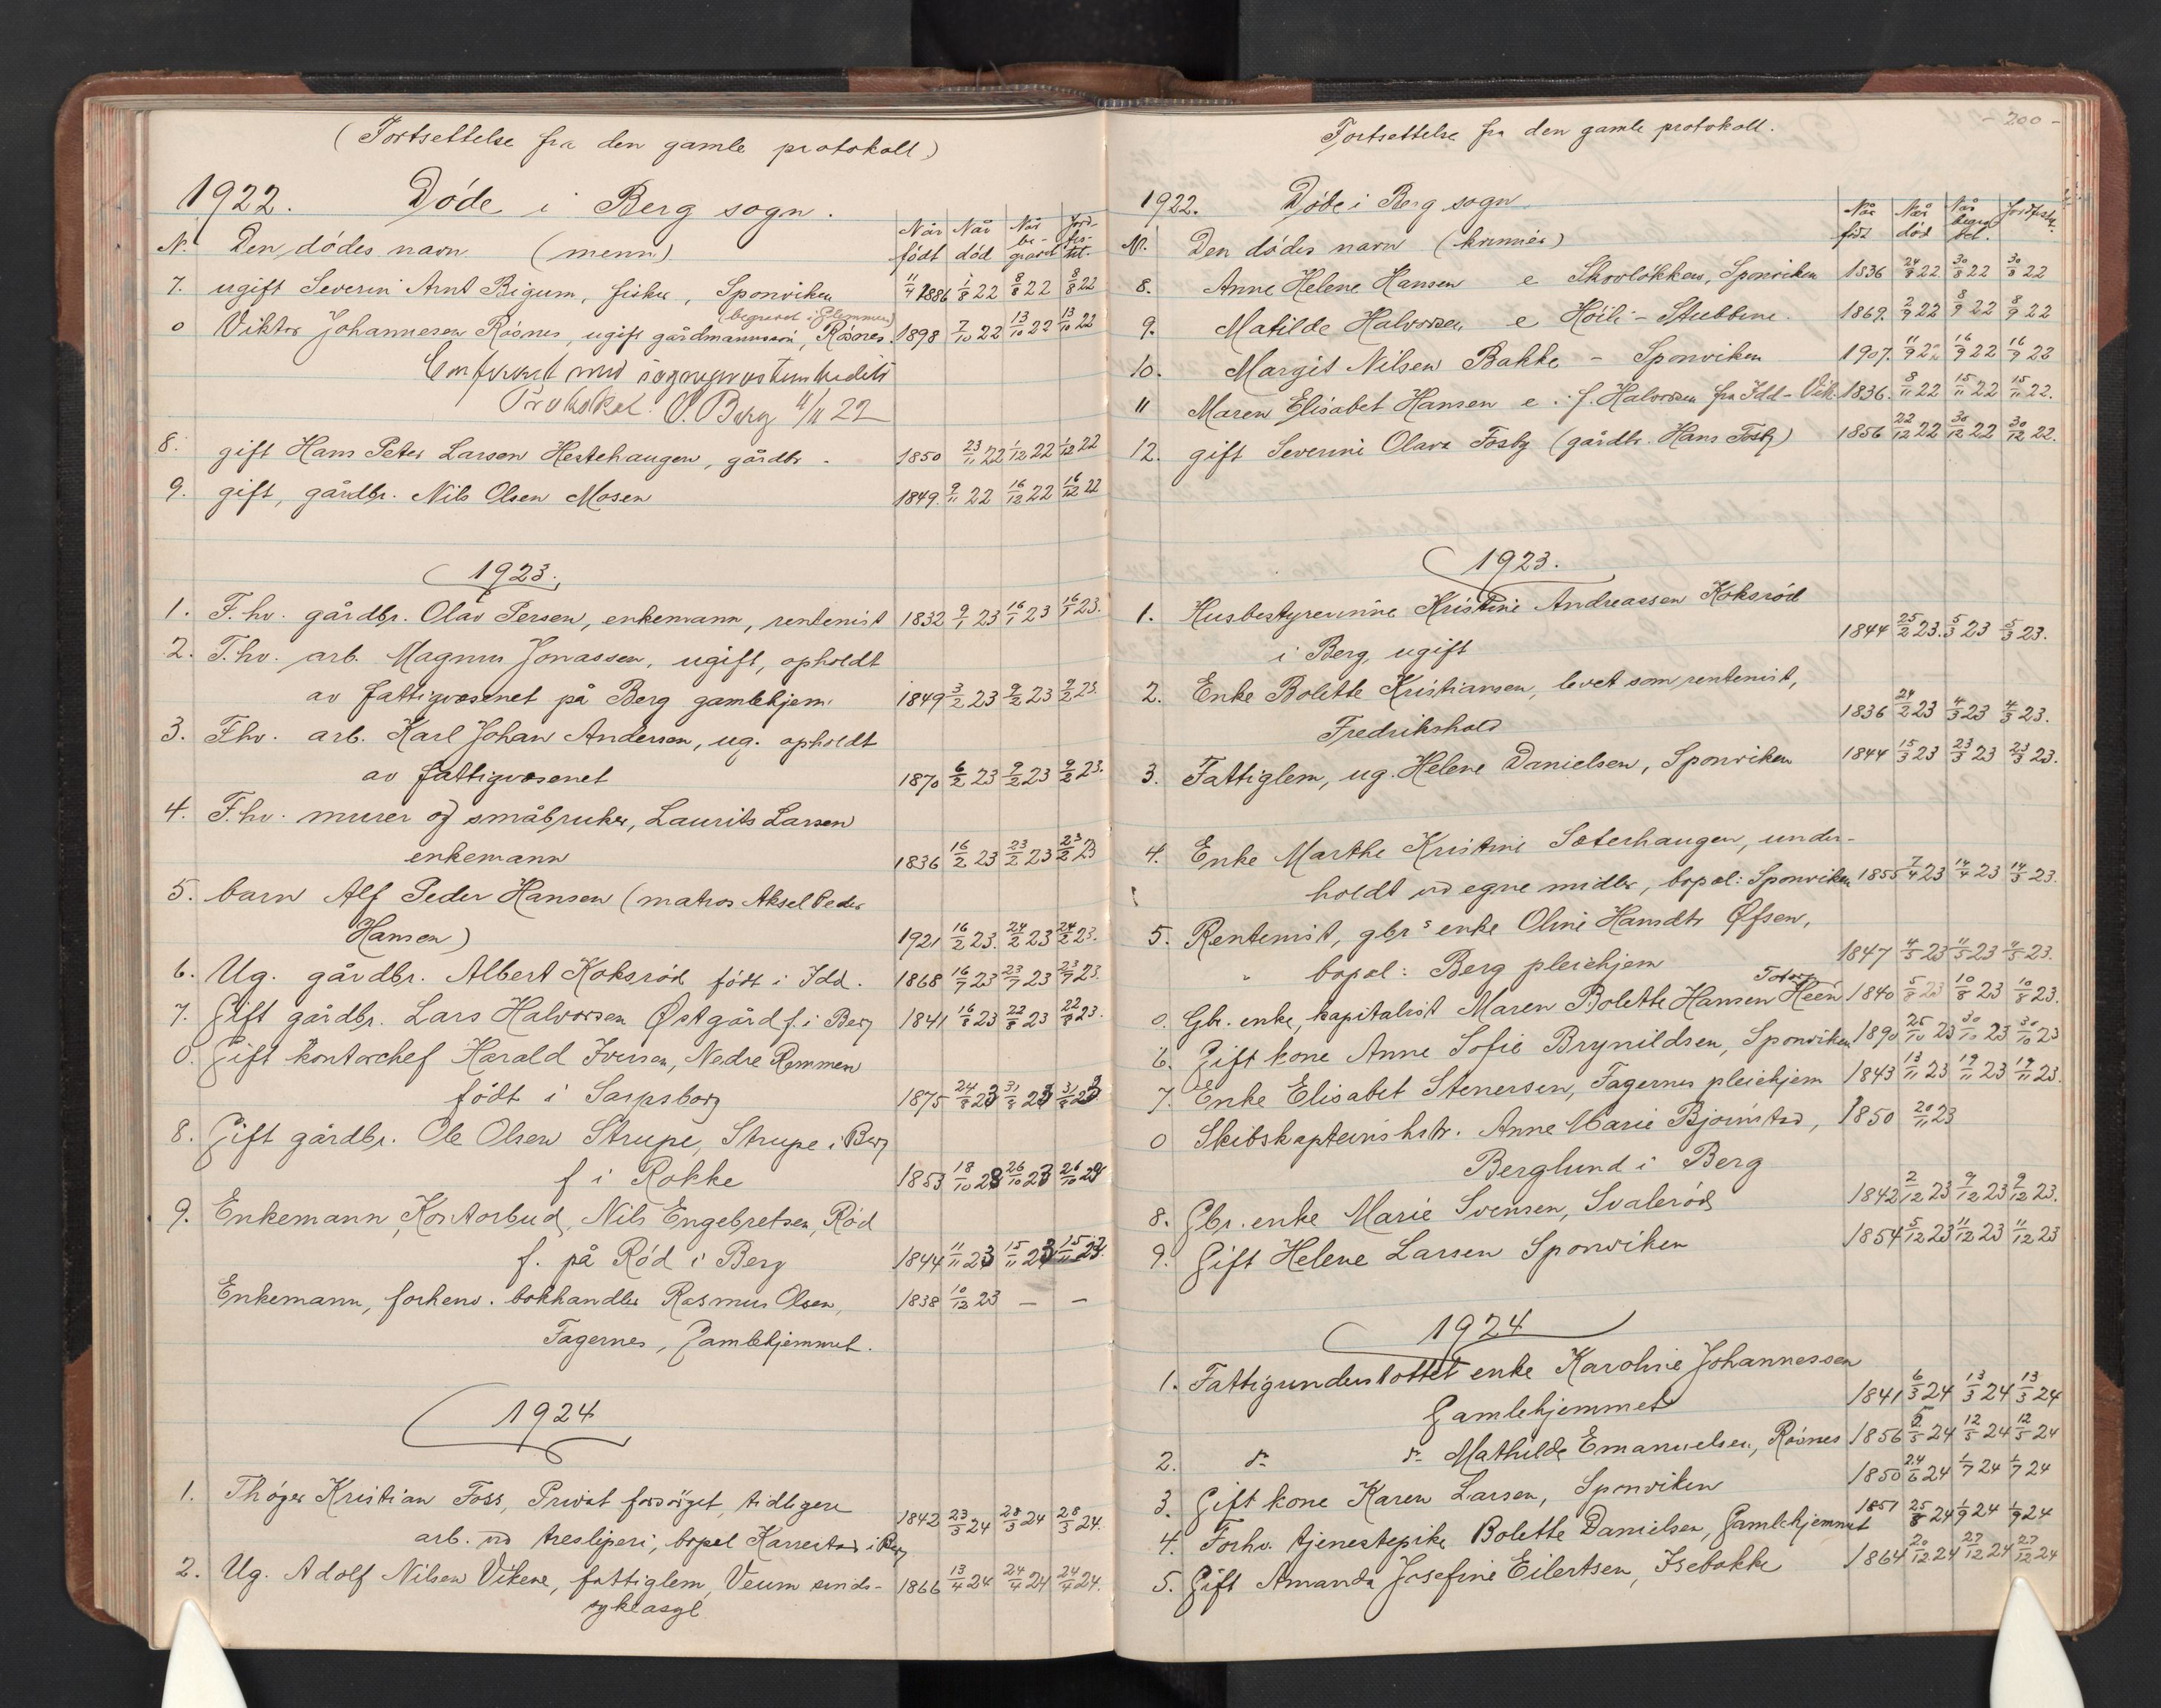 (Fortsettelse fra den gamle protokoll)
1922. Døde i Berg sogn.
N. Den dødes navn (menn) Når født Når død Når be-gravet Jord-fes-tet.
7. ugift Severin Arnt Bigum, fisker, Sponviken 11/4 1886 1/8 22 8/8 22 8/8 22
(begravet i Glemmen)
0 Viktor Johannesen Røsnes, ugift gårdmannssøn, Røsnes. 1898 7/10 22 13/10 22 13/10 22
Conferert med sogneprestembedets
Protokol. O. Berg 4/11 22
8. gift Hans Peter Larsen Hestehaugen, gårdbr. 1850 23/11 22 1/12 22 1/12 22
9. gift, gårdbr. Nils Olsen Mosen 1849. 9/11 22 16/12 22 16/12 22
1923.
1. F.hv. gårdbr. Olav Persen, enkemann, rentenist 1832 9/1 23 16/1 23 16/1 23.
2. F.hv. arb. Magnus Jonassen, ugift, opholdt
av fattigvæsenet på Berg gamlehjem. 1849 3/2 23 9/2 23 9/2 23.
3. F.hv. arb. Karl Johan Andersen, ug. opholdt
av fattigvæsenet 1870 6/2 23 9/2 23 9/2 23.
4. F.hv. murer og småbruker, Laurits Larsen
enkemann 1836 16/2 23 23/2 23 23/2 23
5. barn Alf Peder Hansen (matros Aksel Peder
Hansen) 1921 16/2 23. 24/2 23 24/2 23.
6. Ug. gårdbr. Albert Koksrød født i Idd. 1868 16/7 23 23/7 23 23/7 23.
7. Gift gårdbr. Lars Halvorsen Østgård f. i Berg 1841 16/8 23 22/8 23 22/8 23.
0. Gift kontorchef Harald Iversen, Nedre Remmen
født i Sarpsborg 1875 24/8 23 31/8 23 31/8 23
8. Gift gårdbr. Ole Olsen Strupe, Strupe i Berg
f i Rokke 1853 18/10 23 26/10 23 26/10 23
9. Enkemann, Kontorbud, Nils Engebretsen, Rød
f. på Rød i Berg 1844 11/11 23 15/11 23 15/11 23.
Enkemann, forhenv. bokhandler Rasmus Olsen, 1838 10/12 23 — —
Fagernes, Gamlehjemmet.
1924
1. Thøger Kristian Foss, Privat forsørget, tidligere
arb. ved tresliperi, bopel Karrestad i Berg 1842 23/3 24 28/3 24 28/3 24.
2. Ug. Adolf Nilsen Vikene, fattiglem, Veum sinds- 1866 13/4 24 24/4 24 24/4 24.
sykeasyl
- 200 -
Fortsettelse fra den gamle protokoll.
1922. Døde i Berg sogn.
N. Den dødes navn (kvinner) Når født Når død Når begra vet. Jordfestet.
8. Anne Helene Hansen e Skovløkken, Sponviken 1836 24/8 22 30/8 22 30/8 22
9. Matilde Halvorsen e Høili - Stubbene. 1869. 2/9 22 8/9 22 8/9 22
10. Margit Nilsen Bakke - Sponviken 1907. 11/9 22 16/9 22 16/9 22
11 Maren Elisabet Hansen e. f. Halvorsen fra Idd - Vik. 1836. 8/11 22 15/11 22 15/11 22.
12. gift Severine Olava Fosby (gårdbr. Hans Fosby) 1856 22/12 22 30/12 22 30/12 22.
1923.
1. Husbestyrerinne Kristine Andreassen Koksrød
i Berg, ugift 1844 25/2 23. 5/3 23 5/3 23.
2. Enke Bolette Kristiansen, levet som rentenist,
Fredrikshald 1836 24/2 23 4/3 23 4/3 23.
3. Fattiglem, ug. Helene Danielsen, Sponviken 1844 15/3 23 23/3 23 23/3 23.
4. Enke Marthe Kristine Sæterhaugen, under-
holdt ved egne midler, bopel: Sponviken 1855 7/4 23 14/4 23 14/3 23.
5. Rentenist, gbr s enke Oline Hansdtr Øfsen,
bopel: Berg pleiehjem 1847 4/5 23 11/5 23 11/5 23.
Torp
0. Gbr. enke, kapitalist Maren Bolette Hansen Heen 1840 5/8 23 10/8 23 10/8 23.
6. Gift kone Anne Sofie Brynildsen, Sponviken 1890 25/10 23 30/10 23 30/10 23
7. Enke Elisabet Stenersen, Fagernes pleiehjem 1843 13/11 23 19/11 23 19/11 23.
0 Skibskapteins hstr. Anne Marie Bjørnstad, 1850 20/11 23
Berglund i Berg
8. Gbr. enke Marie Svensen, Svalerød 1842 2/12 23 9/12 23 9/12 23.
9. Gift Helene Larsen Sponviken 1854 5/12 23 11/12 23 11/12 23
1924
1. Fattigunderstøttet enke Karoline Johannessen
Gamlehjemmet 1841 6/3 24 13/3 24 13/3 24
2. do do Mathilde Emanuelsen, Røsnes 1856 5/5 24 12/5 24 12/5 24
3. Gift kone Karen Larsen, Sponviken 1850 24/6 24 1/7 24 1/7 24
4. Forhv. tjenestepike Bolette Danielsen, Gamlehjemmet 1851 25/8 24 1/9 24 1/9 24
5. Gift Amanda Josefine Eilertsen, Isebakke 1864 20/12 24 27/12 24 27/12 24